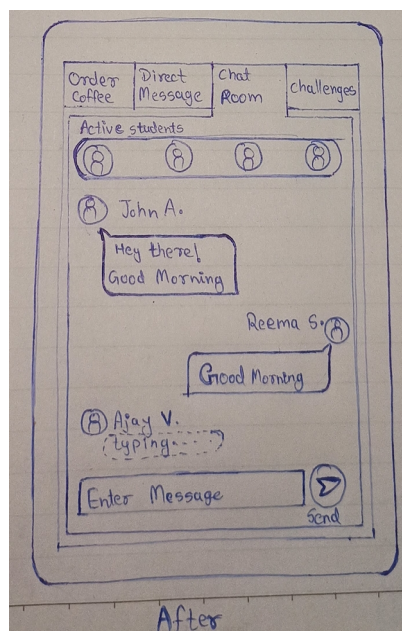 Order Coffee
Direct Message
Chat Room
Challenges
Active students
John A.
Hey there!
Good Morning
Reema S.
Good Morning
Ajay V.
typing....
Enter Message
Send
After